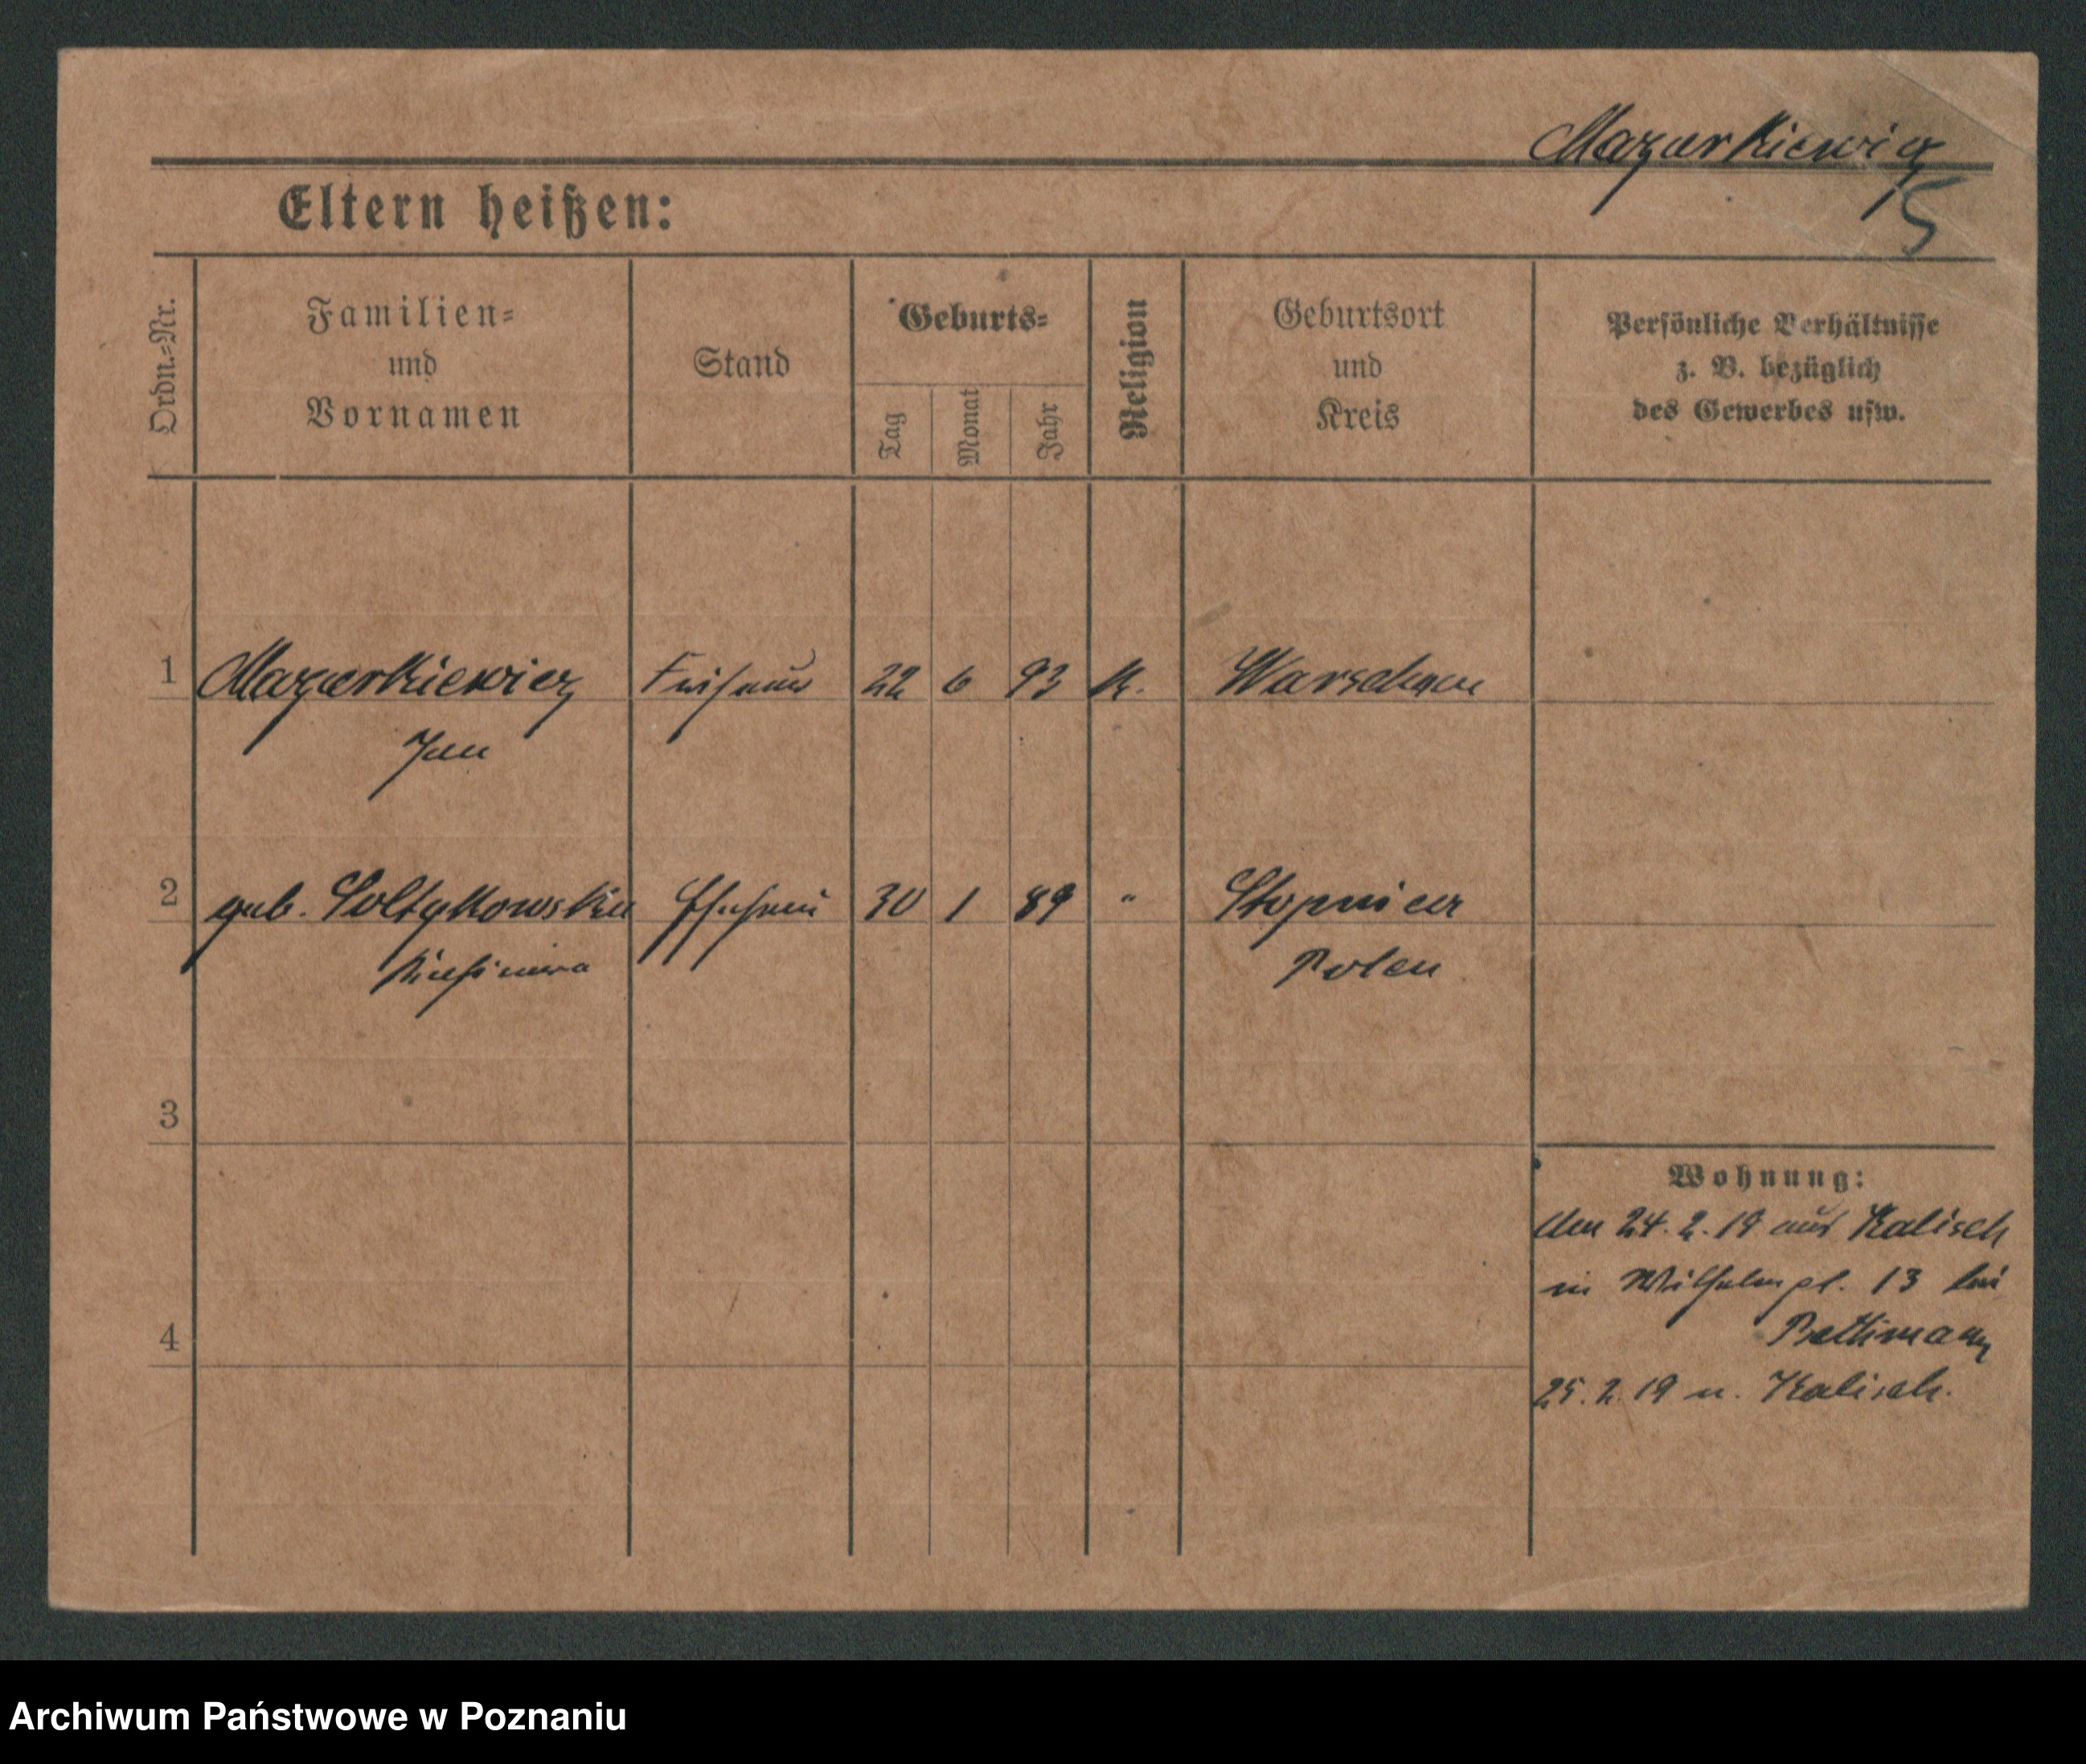 Mazurkiewicz
5
Eltern heißen:
Ordn.=Nr.
Familien=
und
Vornamen
Stand
Geburts=
Tag
Monat
Jahr
Religion
Geburtsort
und
Kreis
Persönliche Verhältnisse
z. B. bezüglich
des Gewerbes usw.
1 Mazurkiewicz 22 6 93 K. Warschau
Jan
2 geb. Soltykowska Ehefrau 30 1 89 " Stopnica
Polen
3
Wohnung:
24.2.19 aus Kalisch
in Wilhelmpl. 13 bei
4
Bethmann
25.2.19 n. Kalisch.
Archiwum Państwowe w Poznaniu